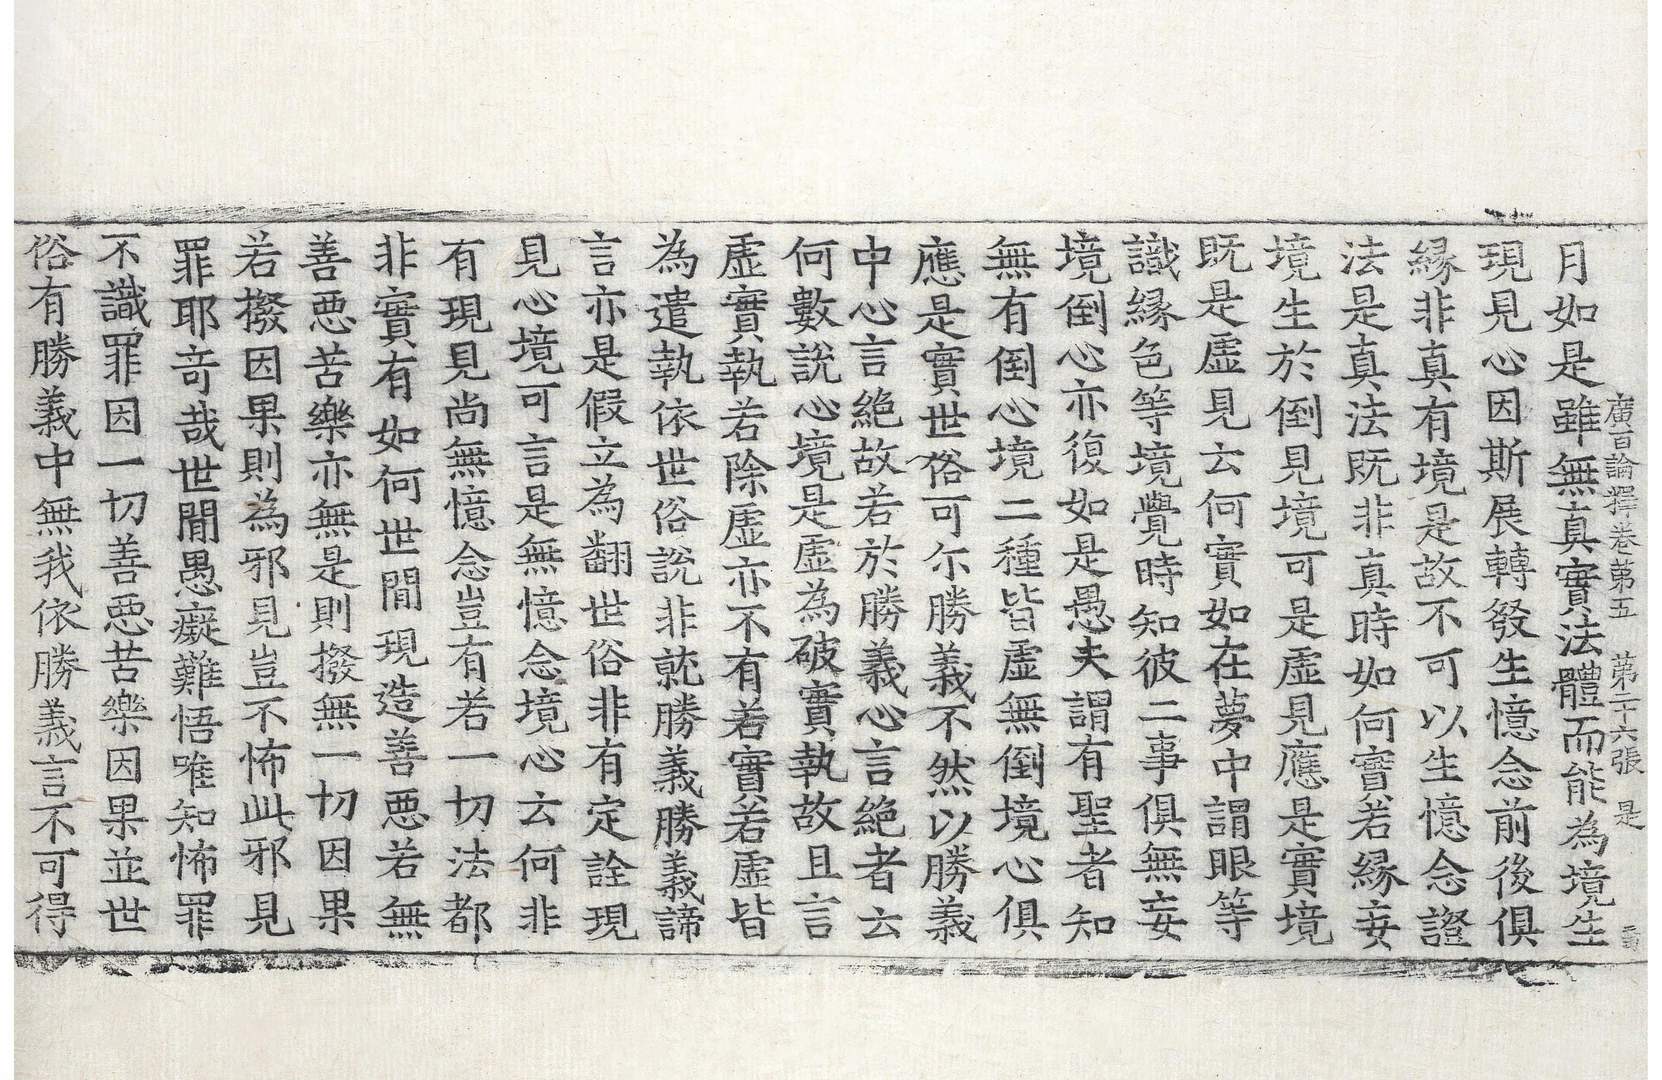 廣百論釋卷第五　第二十六張　是
月如是雖無真實法體而能為境生
現見心因斯展轉發生憶念前後俱
緣非真有境是故不可以生憶念證
法是真法既非真時如何實若緣妄
境生於倒見境可是虛見應是實境
既是虛見云何實如在夢中謂眼等
識緣色等境覺時知彼二事俱無妄
境倒心亦復如是愚夫謂有聖者知
無有倒心境二種皆虛無倒境心俱
應是實世俗可尒勝義不然以勝義
中心言絕故若於勝義心言絕者云
何數說心境是虛為破實執故且言
虛實執若除虛亦不有若實若虛皆
為遣執依世俗說非就勝義勝義諦
言亦是假立為翻世俗非有定詮現
見心境可言是無憶念境心云何非
有現見尚無憶念豈有若一切法都
非實有如何世間現造善惡若無
善惡苦樂亦無是則撥無一切因果
若撥因果則為邪見豈不怖此邪見
罪耶奇哉世間愚癡難悟唯知怖罪
不識罪因一切善惡苦樂因果並世
俗有勝義中無我依勝義言不可得